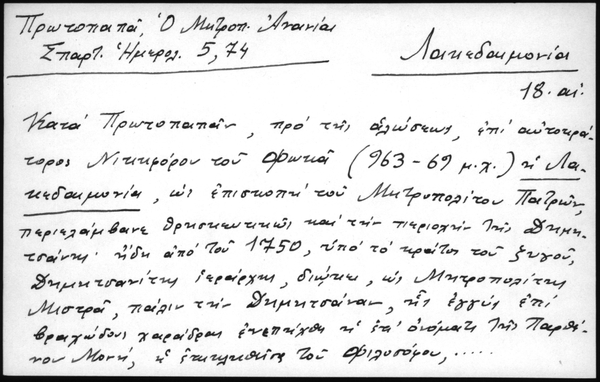 Πρωτοπαπᾶ, Ὁ Μητροπ. Ἀνανίας
Σπαρτ. Ἡμερολ. 5, 74
Λακεδαιμονία
18. αἰ.
Κατά Πρωτοπαπᾶν, πρό τῆς ἁλώσεως, ἐπί αὐτοκρά-
τορος Νικηφόρου τοῦ Φωκᾶ (963-69 μ.χ.) ἡ Λα-
κεδαιμονία, ὡς ἐπισκοπή τοῦ Μητροπολίτου Πατρῶν,
περιελάμβανε θρησκευτικῶς καί τήν περιοχήν τῆς Δημη-
τσάνης· ἤδη ἀπό τοῦ 1750, ὑπό τό κράτος τοῦ ζυγοῦ,
Δημητσανίτης ἱεράρχης, διώκει, ὡς Μητροπολίτης
Μυστρᾶ, πάλιν τήν Δημητσάναν, ἧς ἐγγύς ἐπί
βραχώδους χαράδρας ἐνεπήχθη ἡ ἐπ' ὀνόματι τῆς Παρθέ-
νου Μονή, ἡ ἐπικληθεῖσα τοῦ Φιλοσόφου, .....